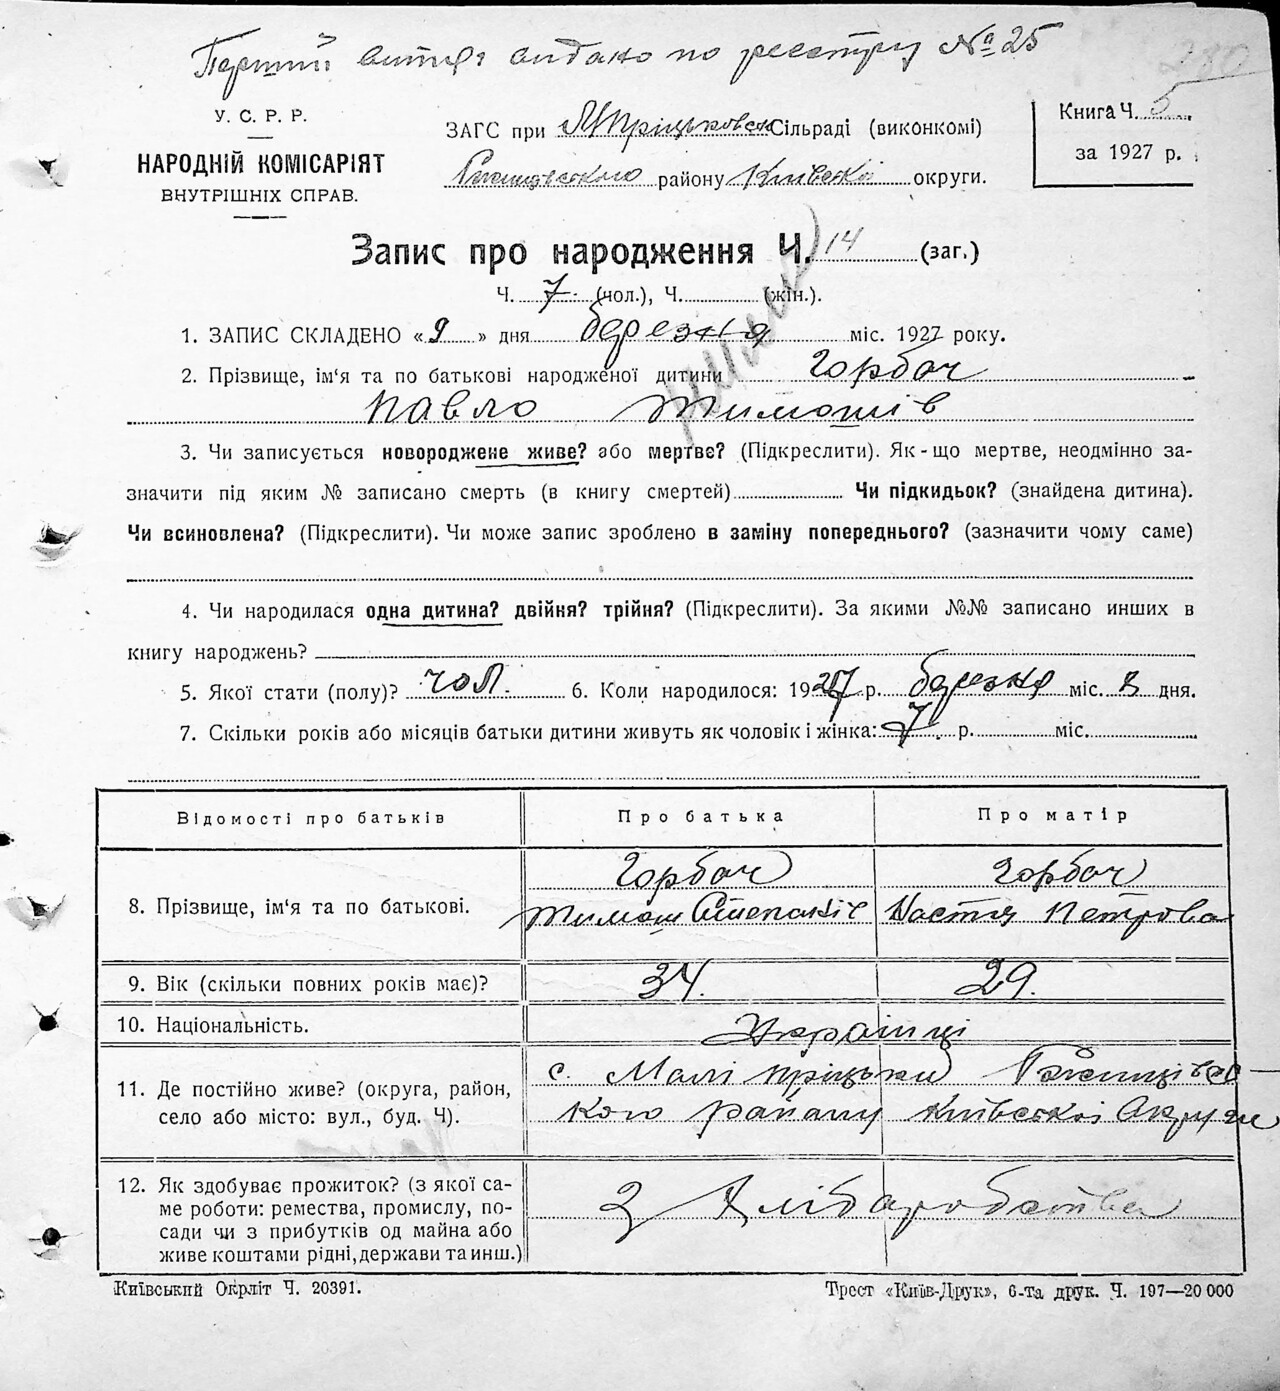 Перший витяг видано по реєстру № 25
280
У. С. Р. Р.
НАРОДНІЙ КОМІСАРІЯТ
ВНУТРІШНІХ СПРАВ.
ЗАГС при М Пріцьковск Сільраді (виконкомі)
Ржищевського району Київської округи.
Книга Ч. 5
за 1927 р.
Запис про народження Ч. 14 (заг.)
Ч. 7 (чол.), Ч. (жін.).
1. ЗАПИС СКЛАДЕНО «9» дня березня міс. 1927 року.
2. Прізвище, ім'я та по батькові народженої дитини Горбач
Павло Тимошів
3. Чи записується новороджене живе? або мертве? (Підкреслити). Як-що мертве, неодмінно за-
значити під яким № записано смерть (в книгу смертей) Чи підкидьок? (знайдена дитина).
Чи всиновлена? (Підкреслити). Чи може запис зроблено в заміну попереднього? (зазначити чому саме)
4. Чи народилася одна дитина? двійня? трійня? (Підкреслити). За якими №№ записано инших в
книгу народжень?
5. Якої стати (полу)? чол. 6. Коли народилося: 1927 р. березня міс. 8 дня.
7. Скільки років або місяців батьки дитини живуть як чоловік і жінка: 7 р. міс.
Відомості про батьків Про батька Про матір
8. Прізвище, ім'я та по батькові. Горбач Горбач
Тимош Степанів Настя Петрова
9. Вік (скільки повних років має)? 34. 29.
10. Національність. Українці
11. Де постійно живе? (округа, район, с. Малі Пріцьки Ржищівсь-
село або місто: вул., буд. Ч). кого району Київської Округи
12. Як здобуває прожиток? (з якої са-
ме роботи: ремества, промислу, по- З Хліборобства
сади чи з прибутків од майна або
живе коштами рідні, держави та инш.)
Київський Окрліт Ч. 20391. Трест «Київ-Друк», 6-та друк. Ч. 197—20 000